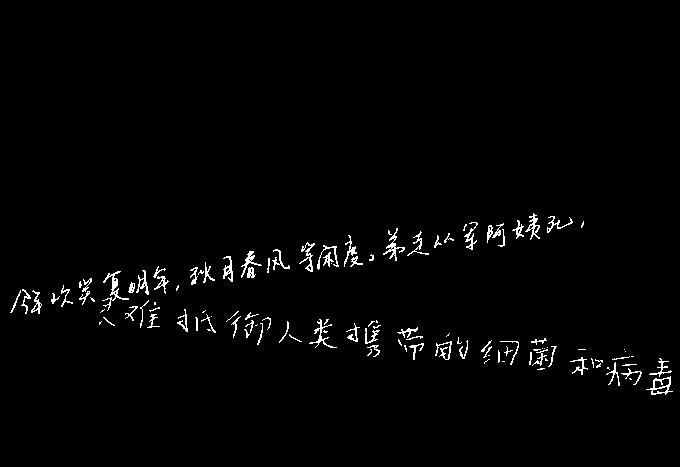 今年欢笑复明年,秋月春风等闲度。弟走从军阿姨死,
难抵御人类携带的细菌和病毒